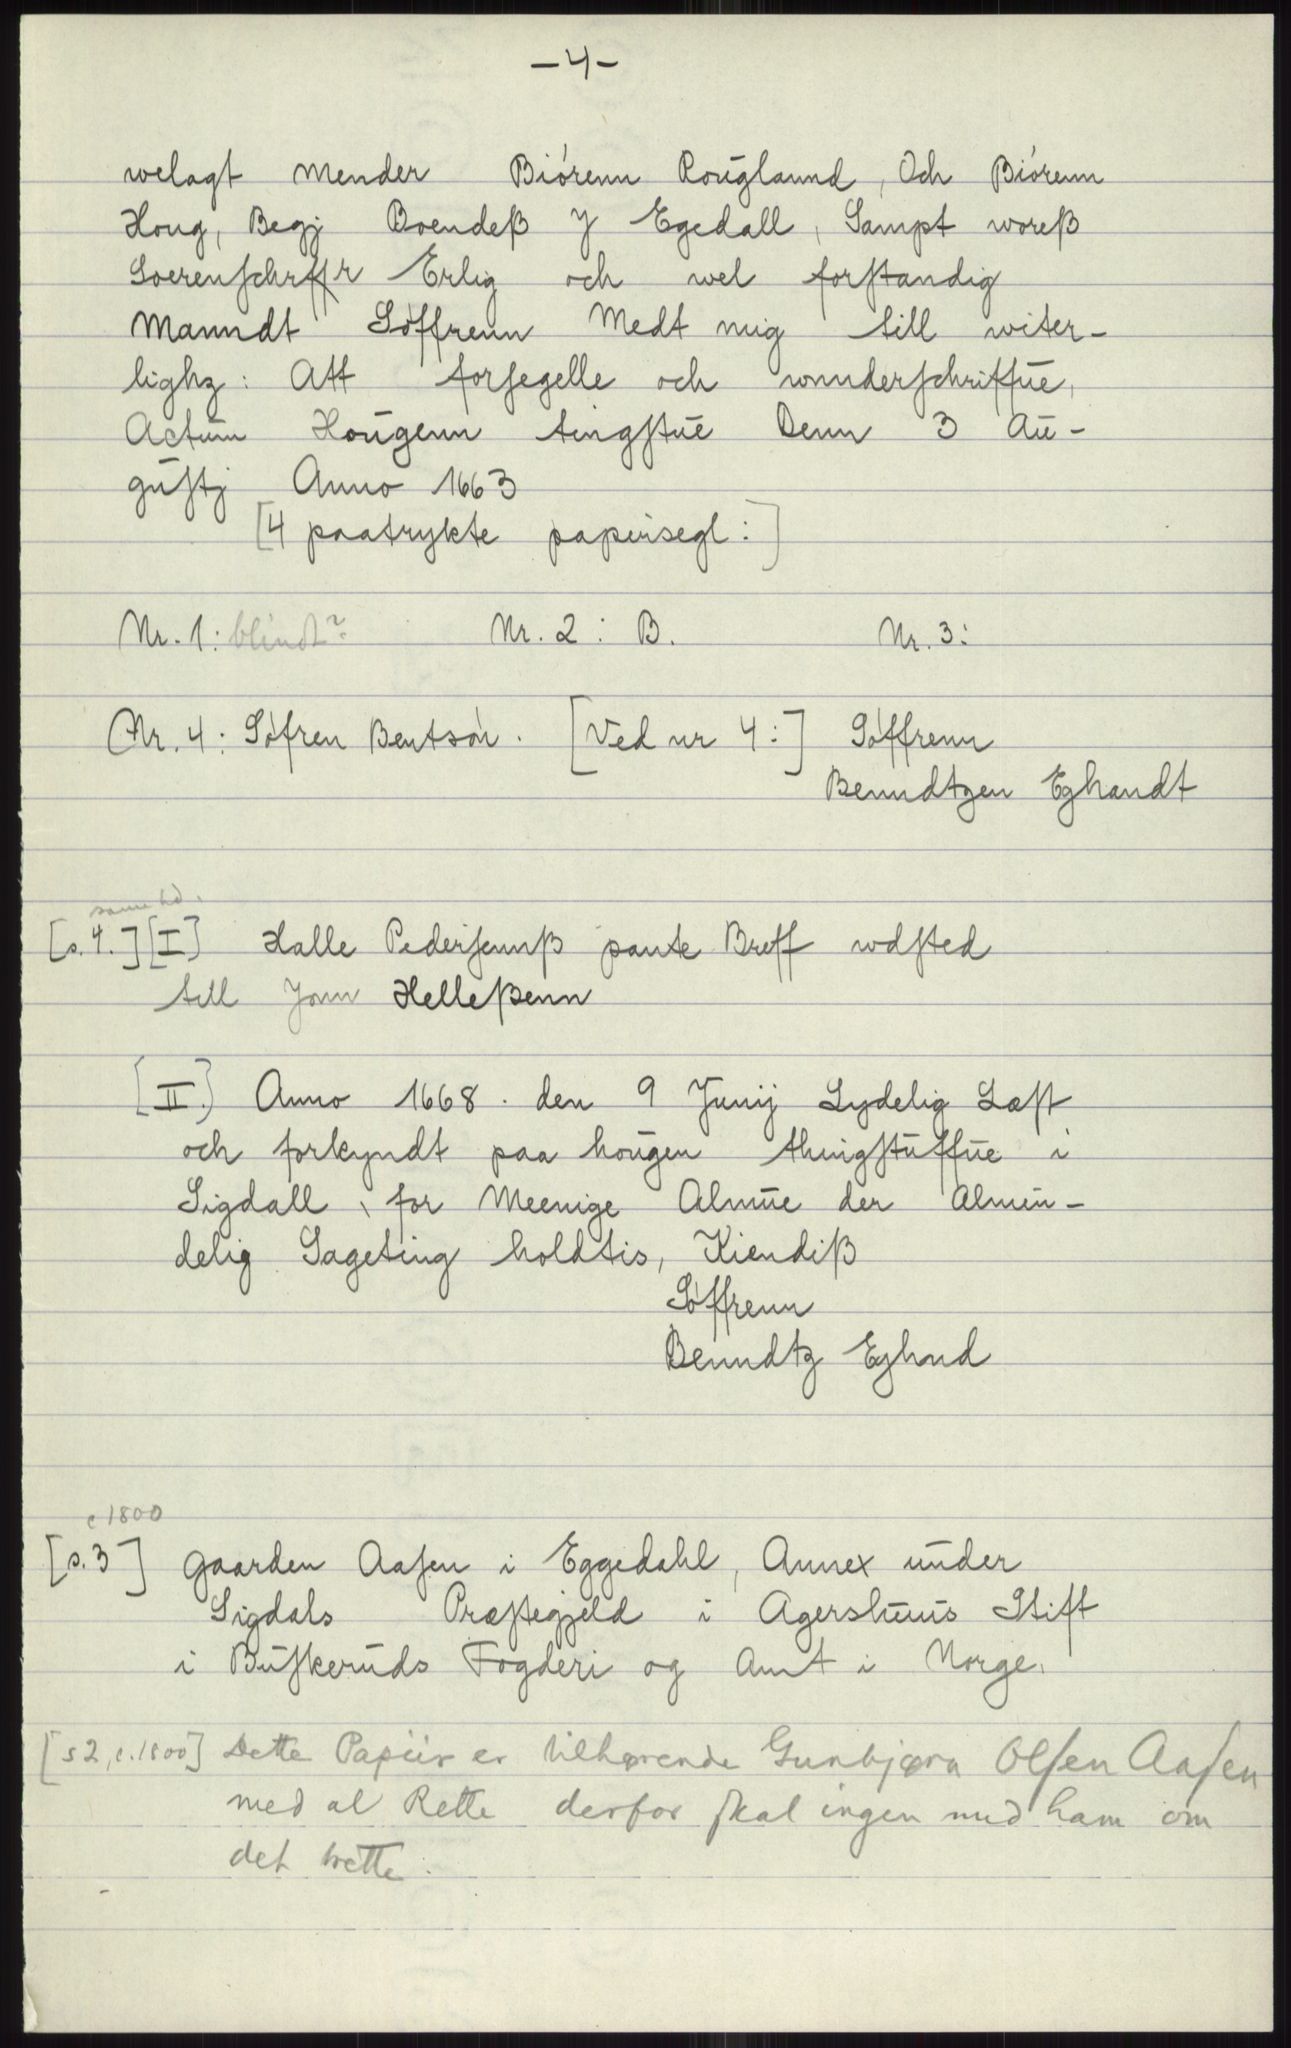 -4-
welagt Mender Biórenn Roŭglaund, Och Biórenn
Houg, Begj Boendeß J Egedall, Sampt woreß
Soerenschrffr Erlig och wel forstandig
Manndt Söffrenn Medt mig till witer-
lighz: Att forsegelle och wnnderschriffŭe,
Actŭm Hoŭgenn tingstŭe Denn 3 Aŭ-
gŭstj Anno 1663
[4 paatrykte papirsegl:]
Nr. 1: blindt? Nr. 2: B. Nr. 3:
Nr. 4: Söfren Bentsön. [Ved nr 4:] Söffrenn
Benndtzen Eghandt
samme hd.
[s. 4.] [I] Halle Pedersennß pante Breff wdsted
till Jonn Helleßenn
[II.] Anno 1668. den 9 Junij Lydelig Læst
och forkyndt paa hoŭgen thingstŭffŭe i
Sigdall, for Meenige Almŭe der Almin-
delig Sageting holdtis, Kiendiß
Söffrenn
Benndtz Eghnd
c 1800
[s. 3] Gaarden Aasen i Eggedahl, Annex ŭnder
Sigdals Præstegjeld i Agershŭŭs Stift
i Bŭskerŭds Fogderi og Amt i Norge.
[s 2, c. 1800] Dette Papiir er tilhørende Gunbjørn Olsen Aasen
med al Rette derfor skal ingen med ham om
det trette.